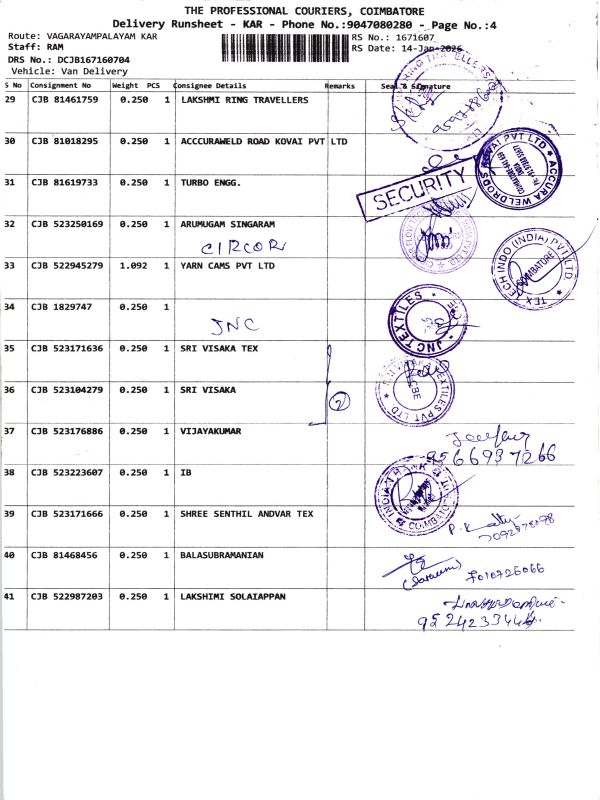 THE PROFESSIONAL COURIERS, COIMBATORE
Delivery Runsheet - KAR - Phone No.:9047080280 - Page No.:4
Route: VAGARAYAMPALAYAM KAR
RS No.: 1671607
Staff: RAM
RS Date: 14-Jan-2026
DRS No.: DCJB167160704
Vehicle: Van Delivery
S No Consignment No Weight PCS Consignee Details Remarks Seal & Signature
29 CJB 81461759 0.250 1 LAKSHMI RING TRAVELLERS
30 CJB 81018295 0.250 1 ACCCURAWELD ROAD KOVAI PVT LTD
ACCURA WELDRODS KOVAI PVT LTD
31 CJB 81619733 0.250 1 TURBO ENGG.
SECURITY
32 CJB 523250169 0.250 1 ARUMUGAM SINGARAM
CIRCOR
33 CJB 522945279 1.092 1 YARN CAMS PVT LTD
TEX TECH INDO (INDIA) PVT LTD
COIMBATORE
34 CJB 1829747 0.250 1
JNC
JNC TEXTILES
CBE
35 CJB 523171636 0.250 1 SRI VISAKA TEX
36 CJB 523104279 0.250 1 SRI VISAKA
2
CBE
37 CJB 523176886 0.250 1 VIJAYAKUMAR
9566937266
38 CJB 523223607 0.250 1 IB
COIMBATORE
39 CJB 523171666 0.250 1 SHREE SENTHIL ANDVAR TEX
40 CJB 81468456 0.250 1 BALASUBRAMANIAN
7010726066
41 CJB 522987203 0.250 1 LAKSHIMI SOLAIAPPAN